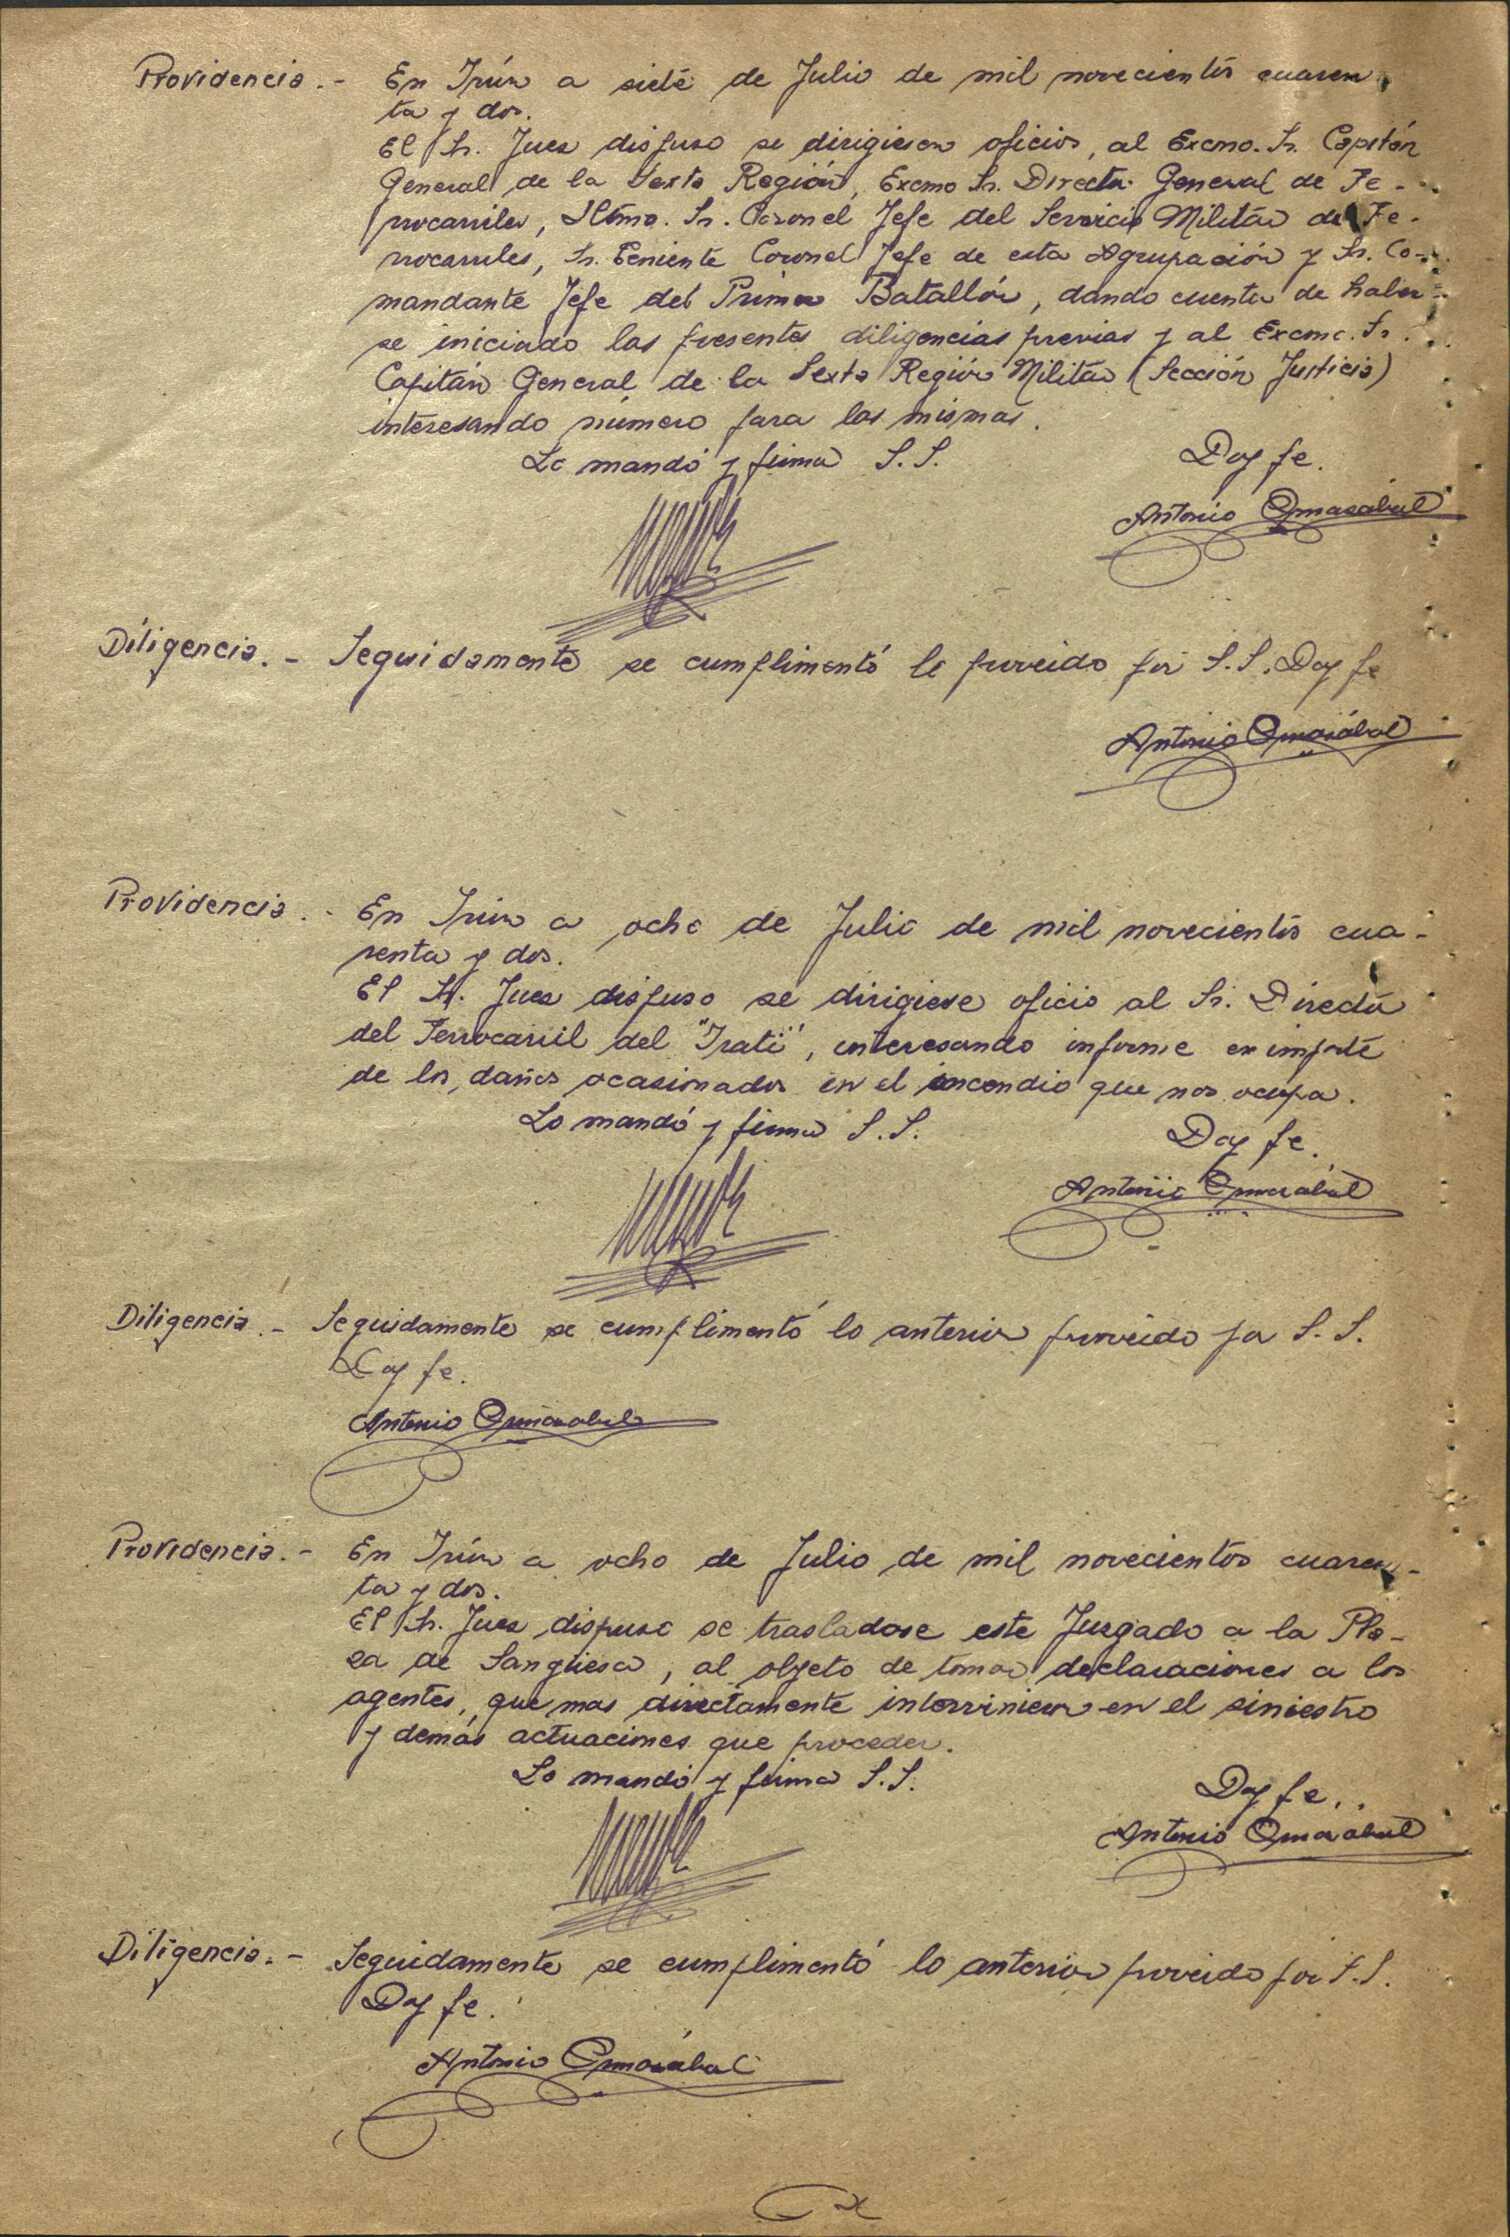 Providencia.- En Irún a siete de Julio de mil novecientos cuaren
ta y dos.
El Sr. Juez dispuso se dirigiesen oficios, al Excmo. Sr. Capitán
General de la Sexta Región, Excmo Sr. Director General de Fe-
rrocarriles, Iltmo. Sr. Coronel Jefe del Servicio Militar de Fe-
rrocarriles, Sr. Teniente Coronel Jefe de esta Agrupación y Sr. Co-
mandante Jefe del Primer Batallón, dando cuenta de haber
se iniciado las presentes diligencias previas y al Excmo. Sr.
Capitán General de la Sexta Región Militar (Sección Justicia)
interesando número para las mismas.
Lo mandó y firma S.S. Doy fe.
Antonio Ormazábal
Diligencia.- Seguidamente se cumplimentó lo proveido por S.S. Doy fe
Antonio Ormazábal
Providencia.- En Irún a ocho de Julio de mil novecientos cua-
renta y dos.
El Sr. Juez dispuso se dirigiese oficio al Sr. Director
del Ferrocarril del "Irati", interesando informe en importe
de los daños ocasionados en el incendio que nos ocupa.
Lo mandó y firma S.S. Doy fe.
Antonio Ormazábal
Diligencia.- Seguidamente se cumplimentó lo anterior proveido por S.S.
Doy fe.
Antonio Ormazábal
Providencia.- En Irún a ocho de Julio de mil novecientos cuaren-
ta y dos.
El Sr. Juez dispuso se trasladase este Juzgado a la Pla-
za de Sangüesa, al objeto de tomar declaraciones a los
agentes, que mas directamente intervinieron en el siniestro
y demás actuaciones que proceden.
Lo mandó y firma S.S. Doy fe.
Antonio Ormazábal
Diligencia.- Seguidamente se cumplimentó lo anterior proveido por S.S.
Doy fe.
Antonio Ormazábal